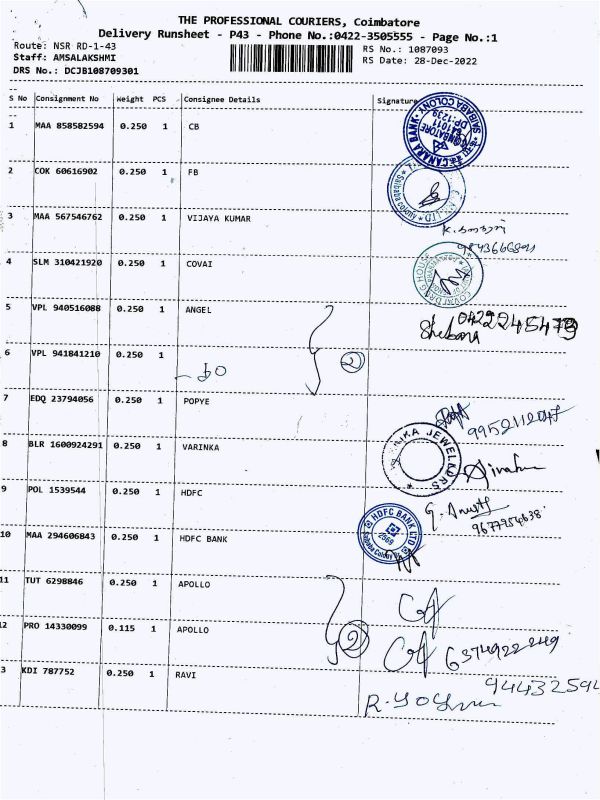 THE PROFESSIONAL COURIERS, Coimbatore
Delivery Runsheet - P43 - Phone No.:0422-3505555 - Page No.:1
Route: NSR RD-1-43 RS No.: 1087093
Staff: AMSALAKSHMI RS Date: 28-Dec-2022
DRS No.: DCJB108709301
S No Consignment No Weight PCS Consignee Details Signature
1 MAA 858582594 0.250 1 CB
CANARA BANK
SAIBABA COLONY
DP:1239
2 COK 60616902 0.250 1 FB
3 MAA 567546762 0.250 1 VIJAYA KUMAR
4 SLM 310421920 0.250 1 COVAI
5 VPL 940516088 0.250 1 ANGEL
6 VPL 941841210 0.250 1 2
7 EDQ 23794056 0.250 1 POPYE
8 BLR 1600924291 0.250 1 VARINKA
JEWELLERS
9 POL 1539544 0.250 1 HDFC
10 MAA 294606843 0.250 1 HDFC BANK
HDFC BANK LTD
11 TUT 6298846 0.250 1 APOLLO
12 PRO 14330099 0.115 1 APOLLO 2 6374922249
3 KDI 787752 0.250 1 RAVI 94432594